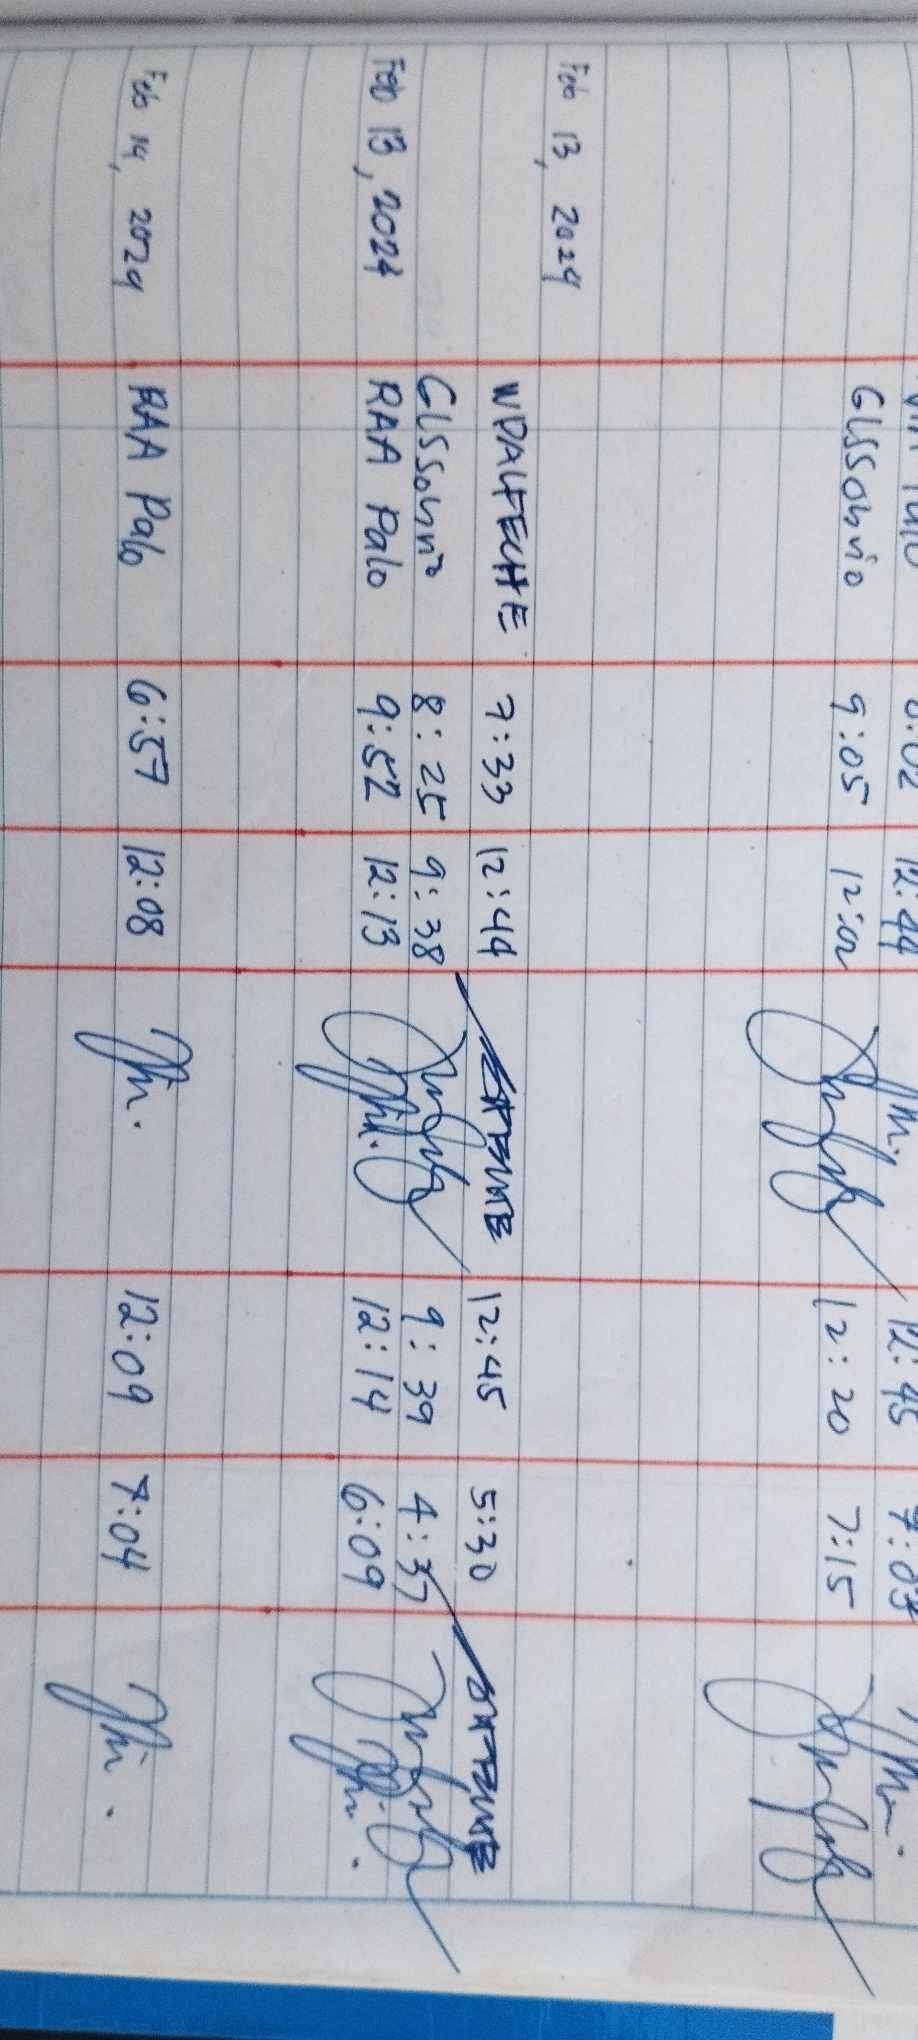 12:44 12:45
GLSSonvio 9:05 12:02 12:20 7:15
Feb 13, 2024
WPALFECHE 7:33 12:44 12:45 5:30
GLSSonvio 8:25 9:38 9:39 4:37
Feb 13, 2024 RAA Palo 9:52 12:13 12:14 6:09
Feb 14, 2024 RAA Palo 6:57 12:08 12:09 7:04